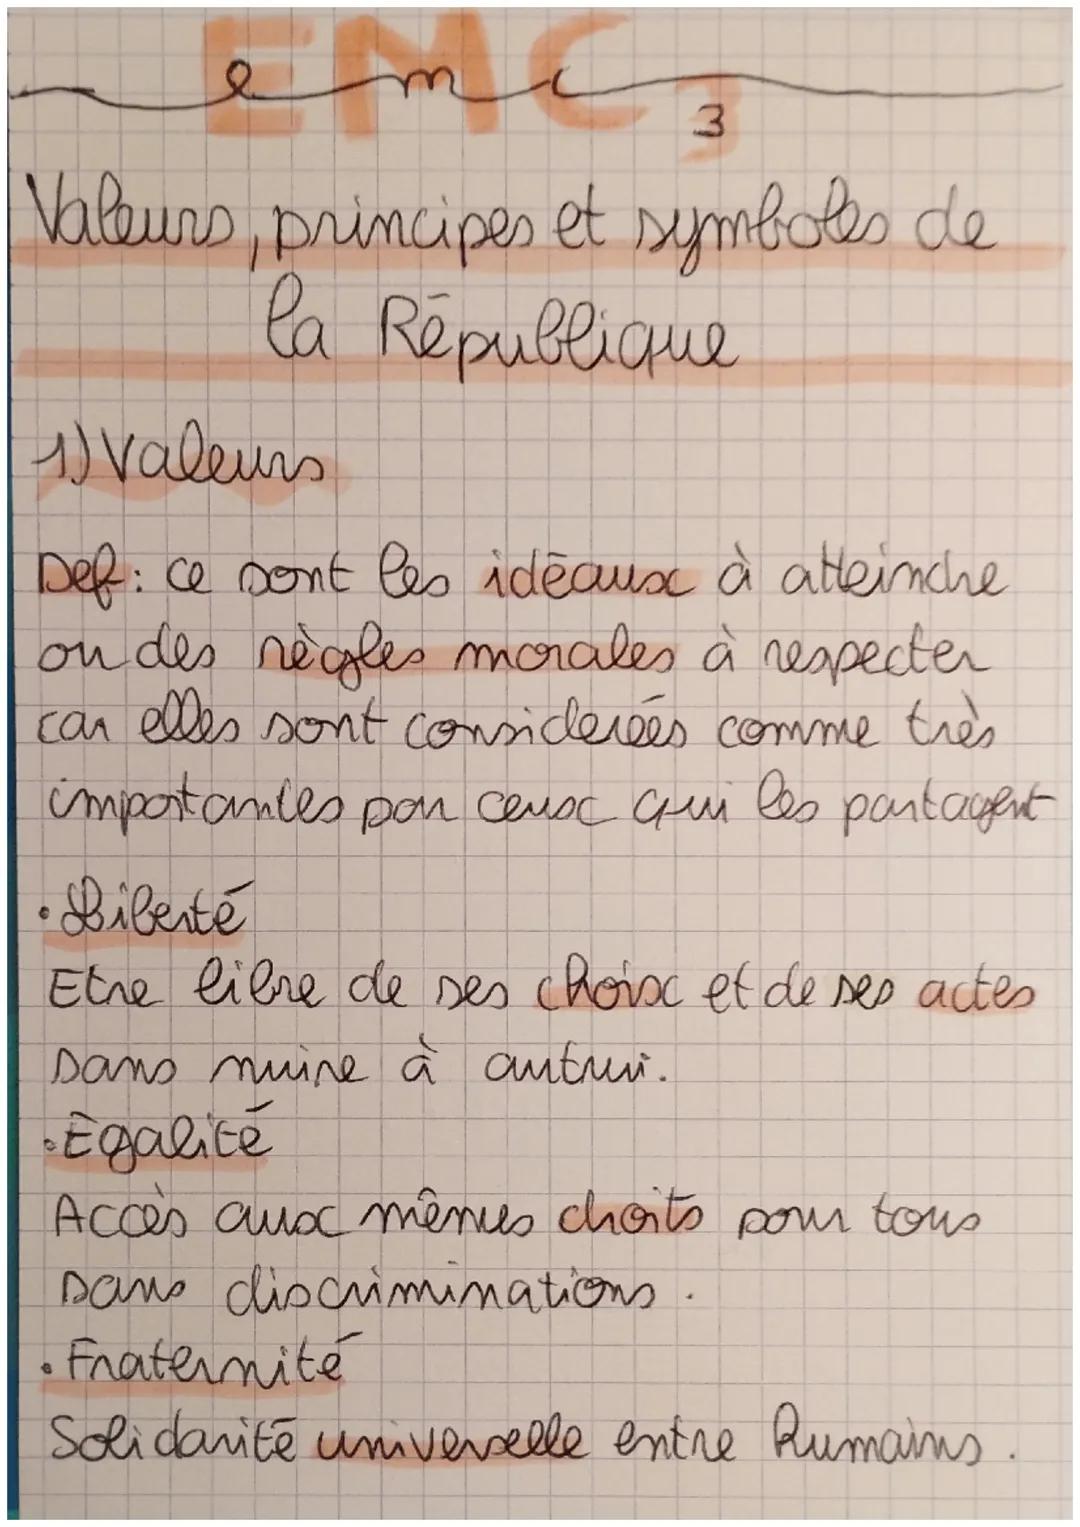 EMC 3
e m c 3
Valeurs, principes et symboles de
la République
1) Valeurs
Def: ce sont les idéaux à atteindre
ou des règles morales à respecter
car elles sont considerées comme très
importantes par ceux qui les partagent
• Liberté
Etre libre de ses choix et de ses actes
sans nuire à autrui.
• Égalité
Accès aux mêmes droits pour tous
sans discriminations.
• Fraternité
Solidarité universelle entre humains.